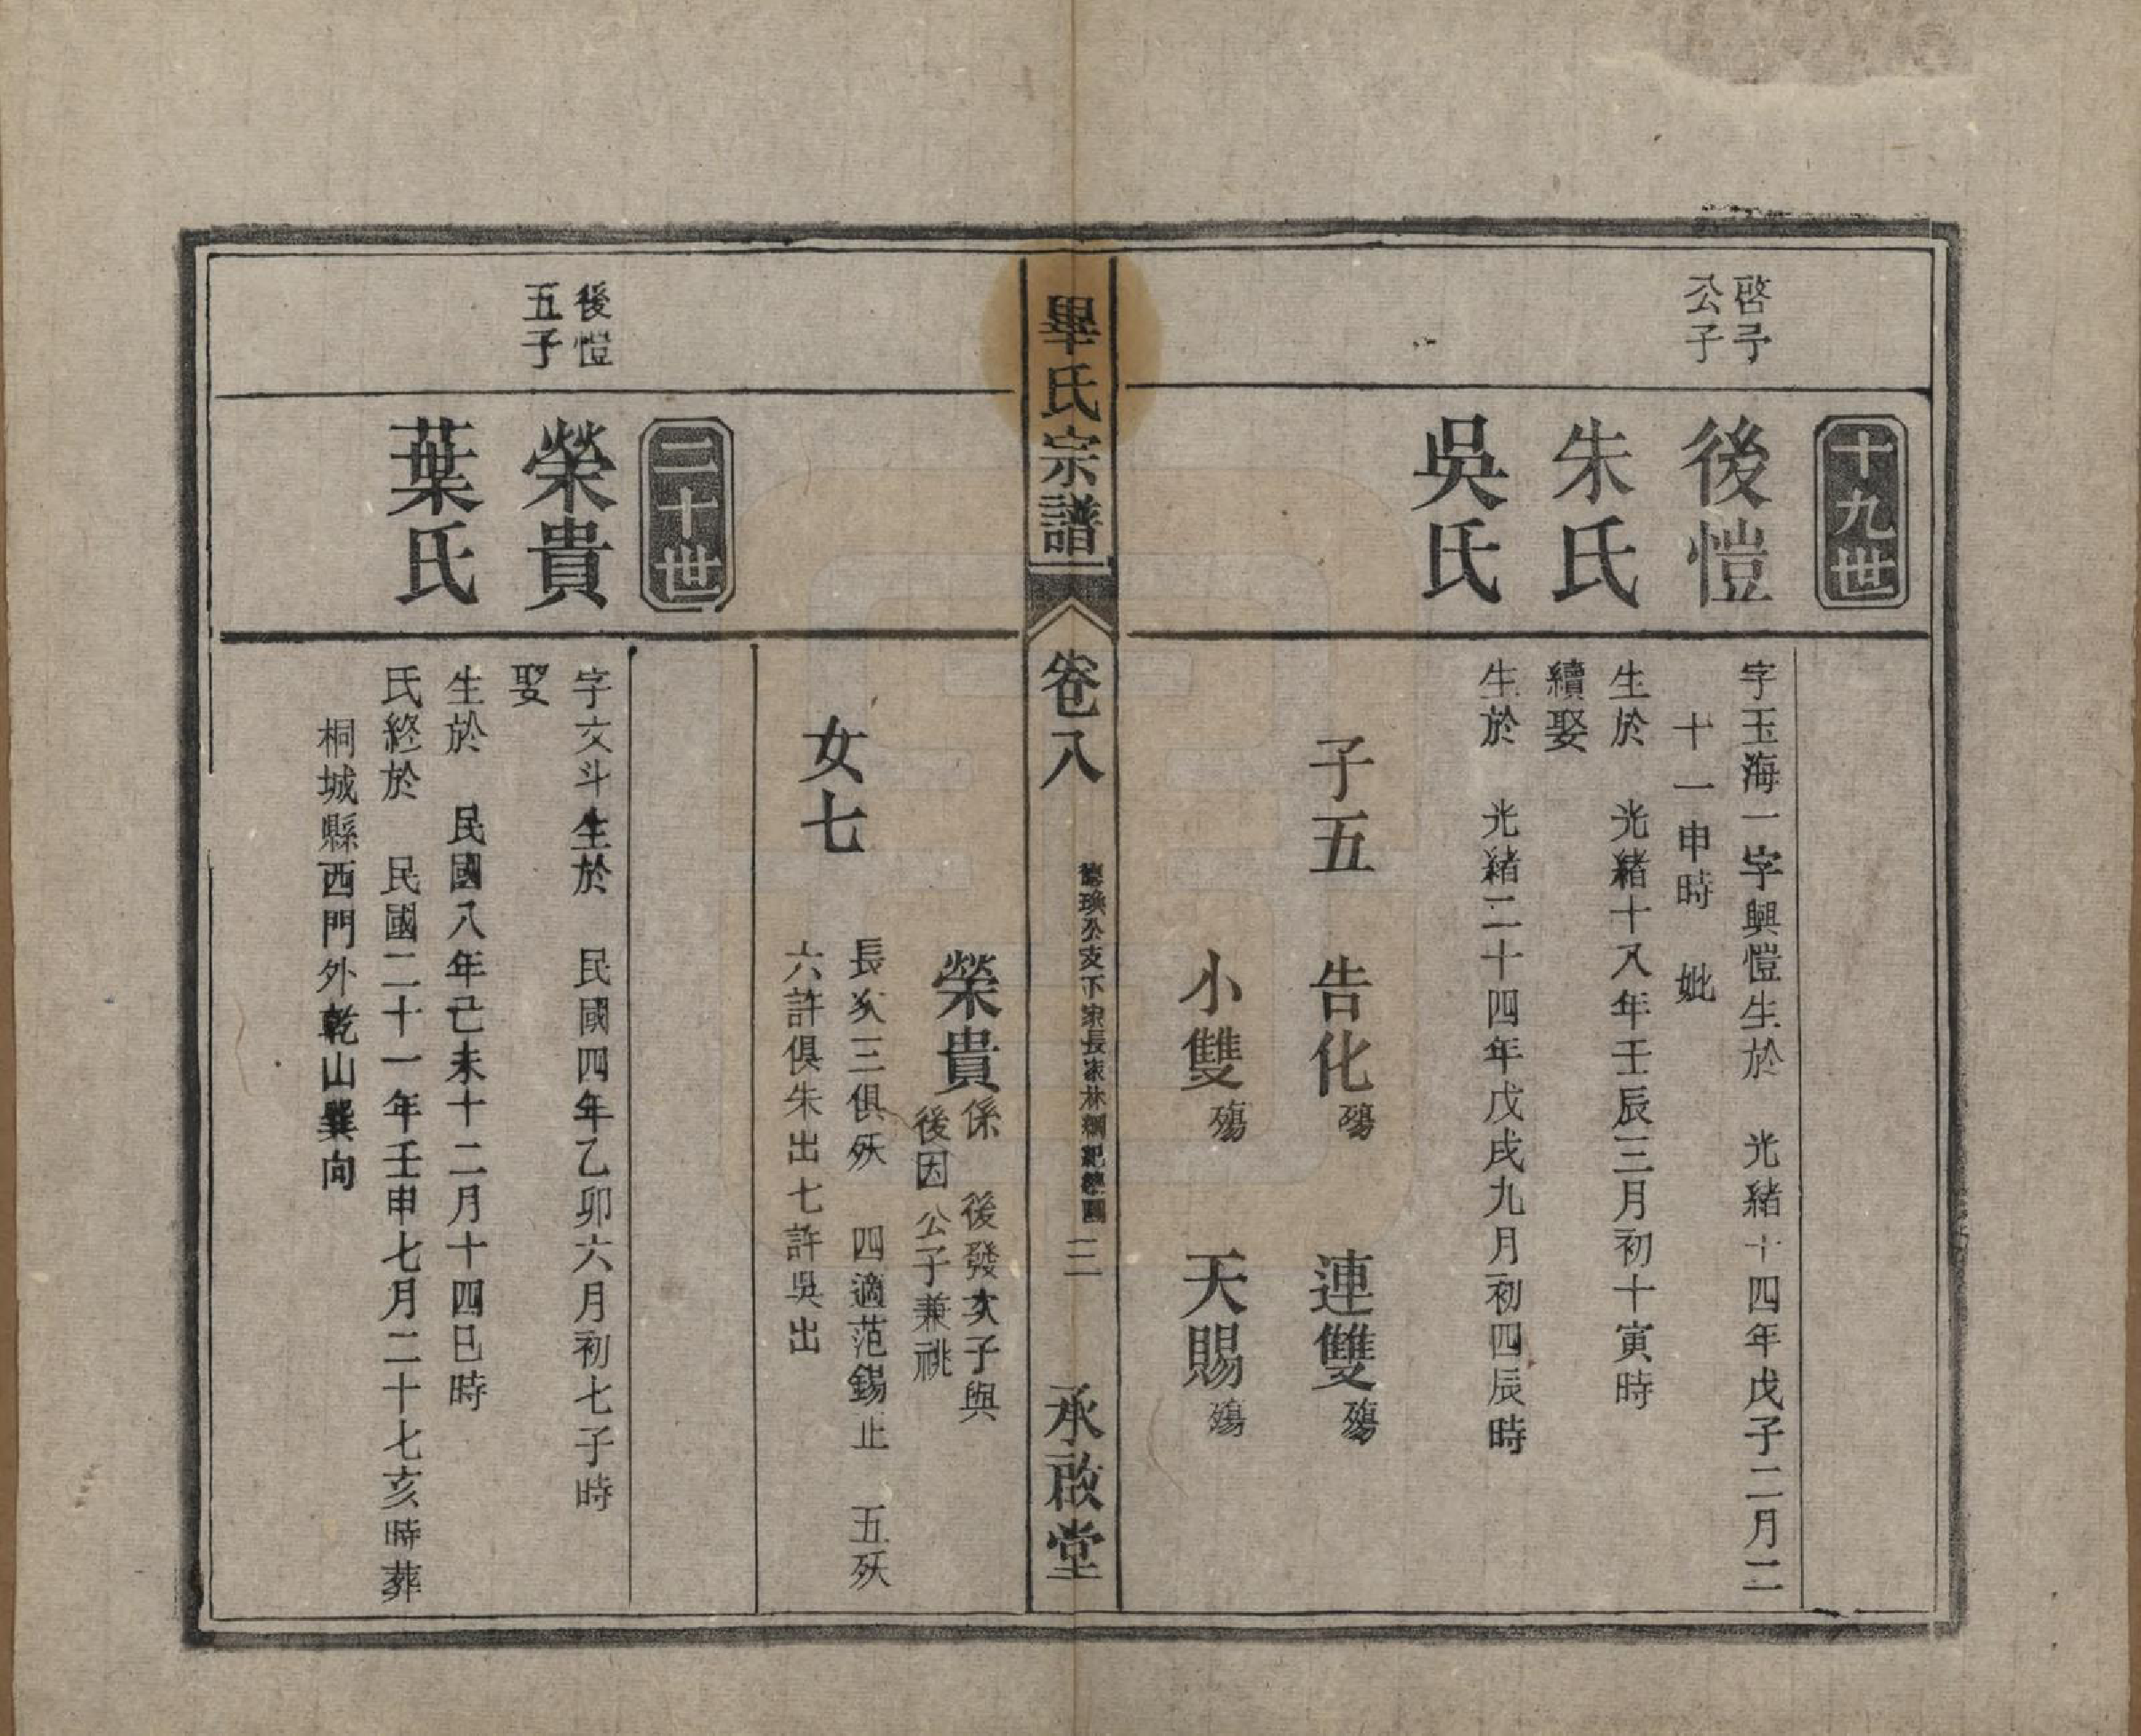 十九世
啓予
公子
後愷
字玉海一字興愷生於　光緒十四年戊子二月二
十一申時　妣
朱氏
生於　光緒十八年壬辰三月初十寅時
續娶
吳氏
生於　光緒二十四年戊戌九月初四辰時
子五　告化殤　連雙殤
小雙殤　天賜殤
畢氏宗譜
卷八
三
承啟堂
榮貴
係　後發次子與
後因公子兼祧
女七
長次三俱殀　四適范錫止　五殀
六許俱朱出七許吳出
二十世
後愷
五子
榮貴
字文斗生於　民國四年乙卯六月初七子時
娶
葉氏
生於　民國八年己未十二月十四巳時
氏終於　民國二十一年壬申七月二十七亥時葬
桐城縣西門外乾山巽向